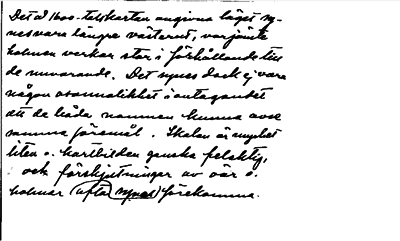 Det å 1600-talskartan angivna läget sy-
nes vara längre västerut, varjämte
holmen verkar stor i förhållande till
de nuvarande. Det synes dock ej vara
någon osannolikhet i antagandet
att de båda namnen kunna avse
samma föremål. Skalan är mycket
liten o. kartbilden ganska felaktig,
och förskjutningar av öar o.
holmar ofta synas förekomma.